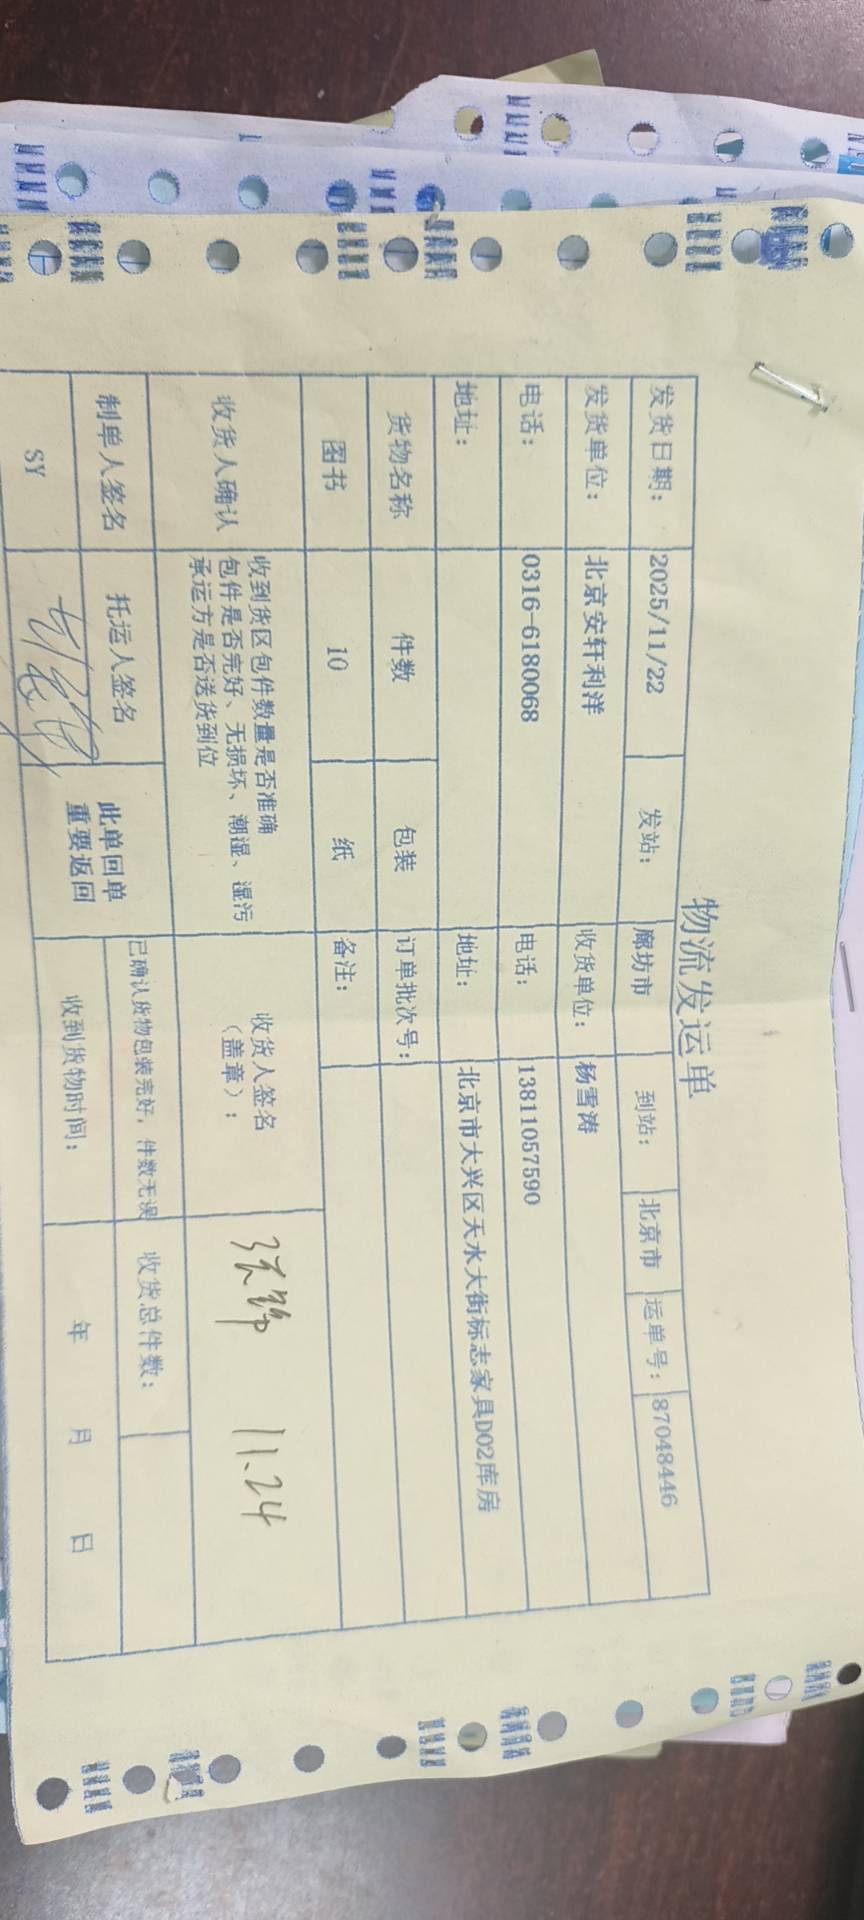 物流发运单
发货日期： 2025/11/22 发站： 廊坊市 到站： 北京市 运单号： 87048446
发货单位： 北京安轩利洋 收货单位： 杨雪涛
电话： 0316-6180068 电话： 13811057590
地址： 地址： 北京市大兴区天水大街标志家具D02库房
货物名称 件数 包装 订单批次号：
图书 10 纸 备注：
收货人确认 收到货区包件数量是否准确
包件是否完好、无损坏、潮湿、湿污
承运方是否送货到位
收货人签名
（盖章）：
11.24
制单人签名 托运人签名 此单回单
重要返回
已确认货物包装完好，件数无误 收货总件数：
SY 收到货物时间： 年 月 日